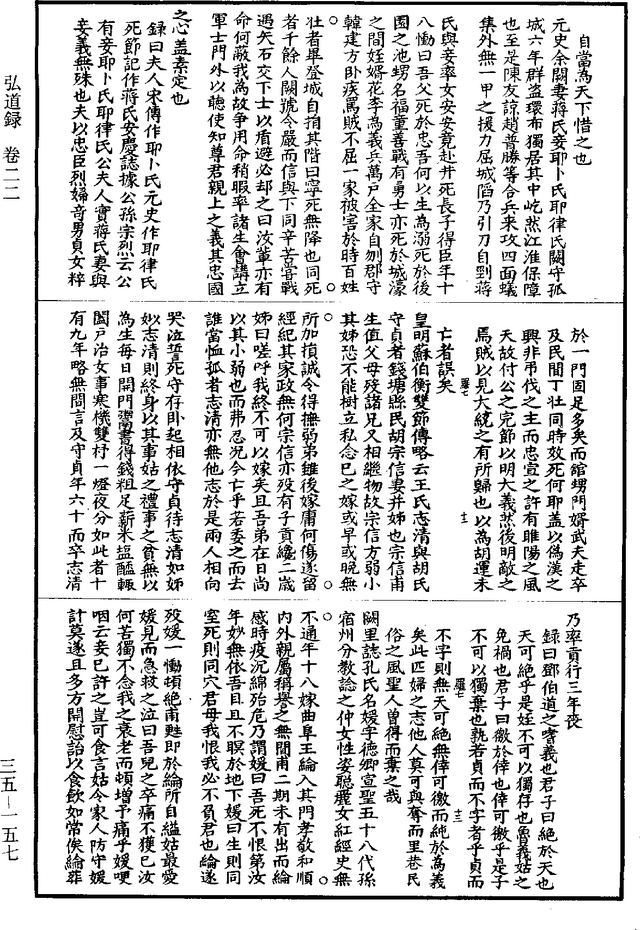 自當為天下惜之也
元史余闕妻蔣氏妾耶卜氏耶律氏闕守孤
城六年群盜環布獨居其中屹然江淮保障
也至是陳友諒趙普勝等合兵來攻四面蟻
集外無一甲之援力屈城陷乃引刀自剄蔣
氏與妾率女安安竟赴井死長子得臣年十
八慟曰吾父死於忠吾何以生為溺死於後
園之池甥名福童善戰有勇士亦死於城濠
之間姪婿花李為義兵萬戶全家自刎郡守
韓建方卧疾罵賊不屈一家被害於時百姓
壯者畢登城自捐其階曰寧死無降也同死
者千餘人闕號令嚴而信與下同辛苦嘗戰
遇矢石交下士以盾避必却之曰汝輩亦有
命何蔽我為故爭用命稍暇率諸生會講立
軍士門外以聽使知尊君親上之義其忠國
之心蓋素定也
錄曰夫人宋傳作耶卜氏元史作耶律氏
死節記作蔣氏安慶誌據公孫宗烈云公
有妾耶卜氏耶律氏公夫人實蔣氏妻與
妾義無殊也夫以忠臣烈婦奇男貞女粹
於一門固足多矣而舘甥門婿武夫走卒
及民間丁壯同時效死何耶蓋以僞漢之
興非弔伐之主而忠宣之許有睢陽之風
天故付公之完節以明大義然後明敵之
焉賊以見大統之有所歸也以為胡運未
亡者誤矣
皇明蘇伯衡雙節傳略云王氏志清與胡氏
守貞者錢塘縣民胡宗信妻并姊也宗信甫
生值父母歿諸兄又相繼物故宗信方弱小
其姊恐不能樹立私念已之嫁或早或晚無
所加損誠令得撫弱弟雖後嫁庸何傷遂留
經紀其家政無何宗信亦歿有子貢纔二歲
姊曰嗟呼我終不可以嫁矣且吾弟在日尚
以其小弱也而弗忍况今亡乎若委之而去
誰當恤孤者志清亦無他志於是兩人相向
哭泣誓死守存卧起相依守貞待志清如姊
姒志清則終身以其事姑之禮事之貧無以
為生每日開門鬻書得錢粗足薪米塩醯輒
闔戶治女事寒機雙杼一燈夜分如此者十
有九年略無間言及守貞年六十而卒志清
乃率貢行三年喪
錄曰鄧伯道之嗜義也君子曰絕於天也
天可絕乎是姪不可以獨存也魯義姑之
免禍也君子曰徼於倖也倖可徼乎是子
不可以獨棄也孰若貞而不字者乎貞而
不字則無天可絕無倖可徼而純於為義
矣此匹婦之志他人莫可與奪而里巷民
俗之風聖人曽得而棄之哉
闕里誌孔氏名媛字德卿宣聖五十八代孫
宿州分教諗之仲女性姿聰麗女紅經史無
不通年十八嫁曲阜王綸入其門孝敬和順
內外親屬稱譽之無間甫二期未有出而綸
感時疫沉綿殆危乃謂媛曰吾死不恨第汝
年妙無依吾目且不瞑於地下媛曰生則同
室死則同穴君毋我恨我必不負君也綸遂
歿媛一慟頓絕甫甦即於綸所自縊姑最愛
媛見而急救之泣曰吾兒之卒痛不獲已汝
何苦獨不念我之衰老而頓增予痛乎媛哽
咽云妾已許之豈可食言姑令家人防守媛
計莫遂且多方開慰詒以食飲如常俟綸葬
弘道録　卷二二
三五－一五七